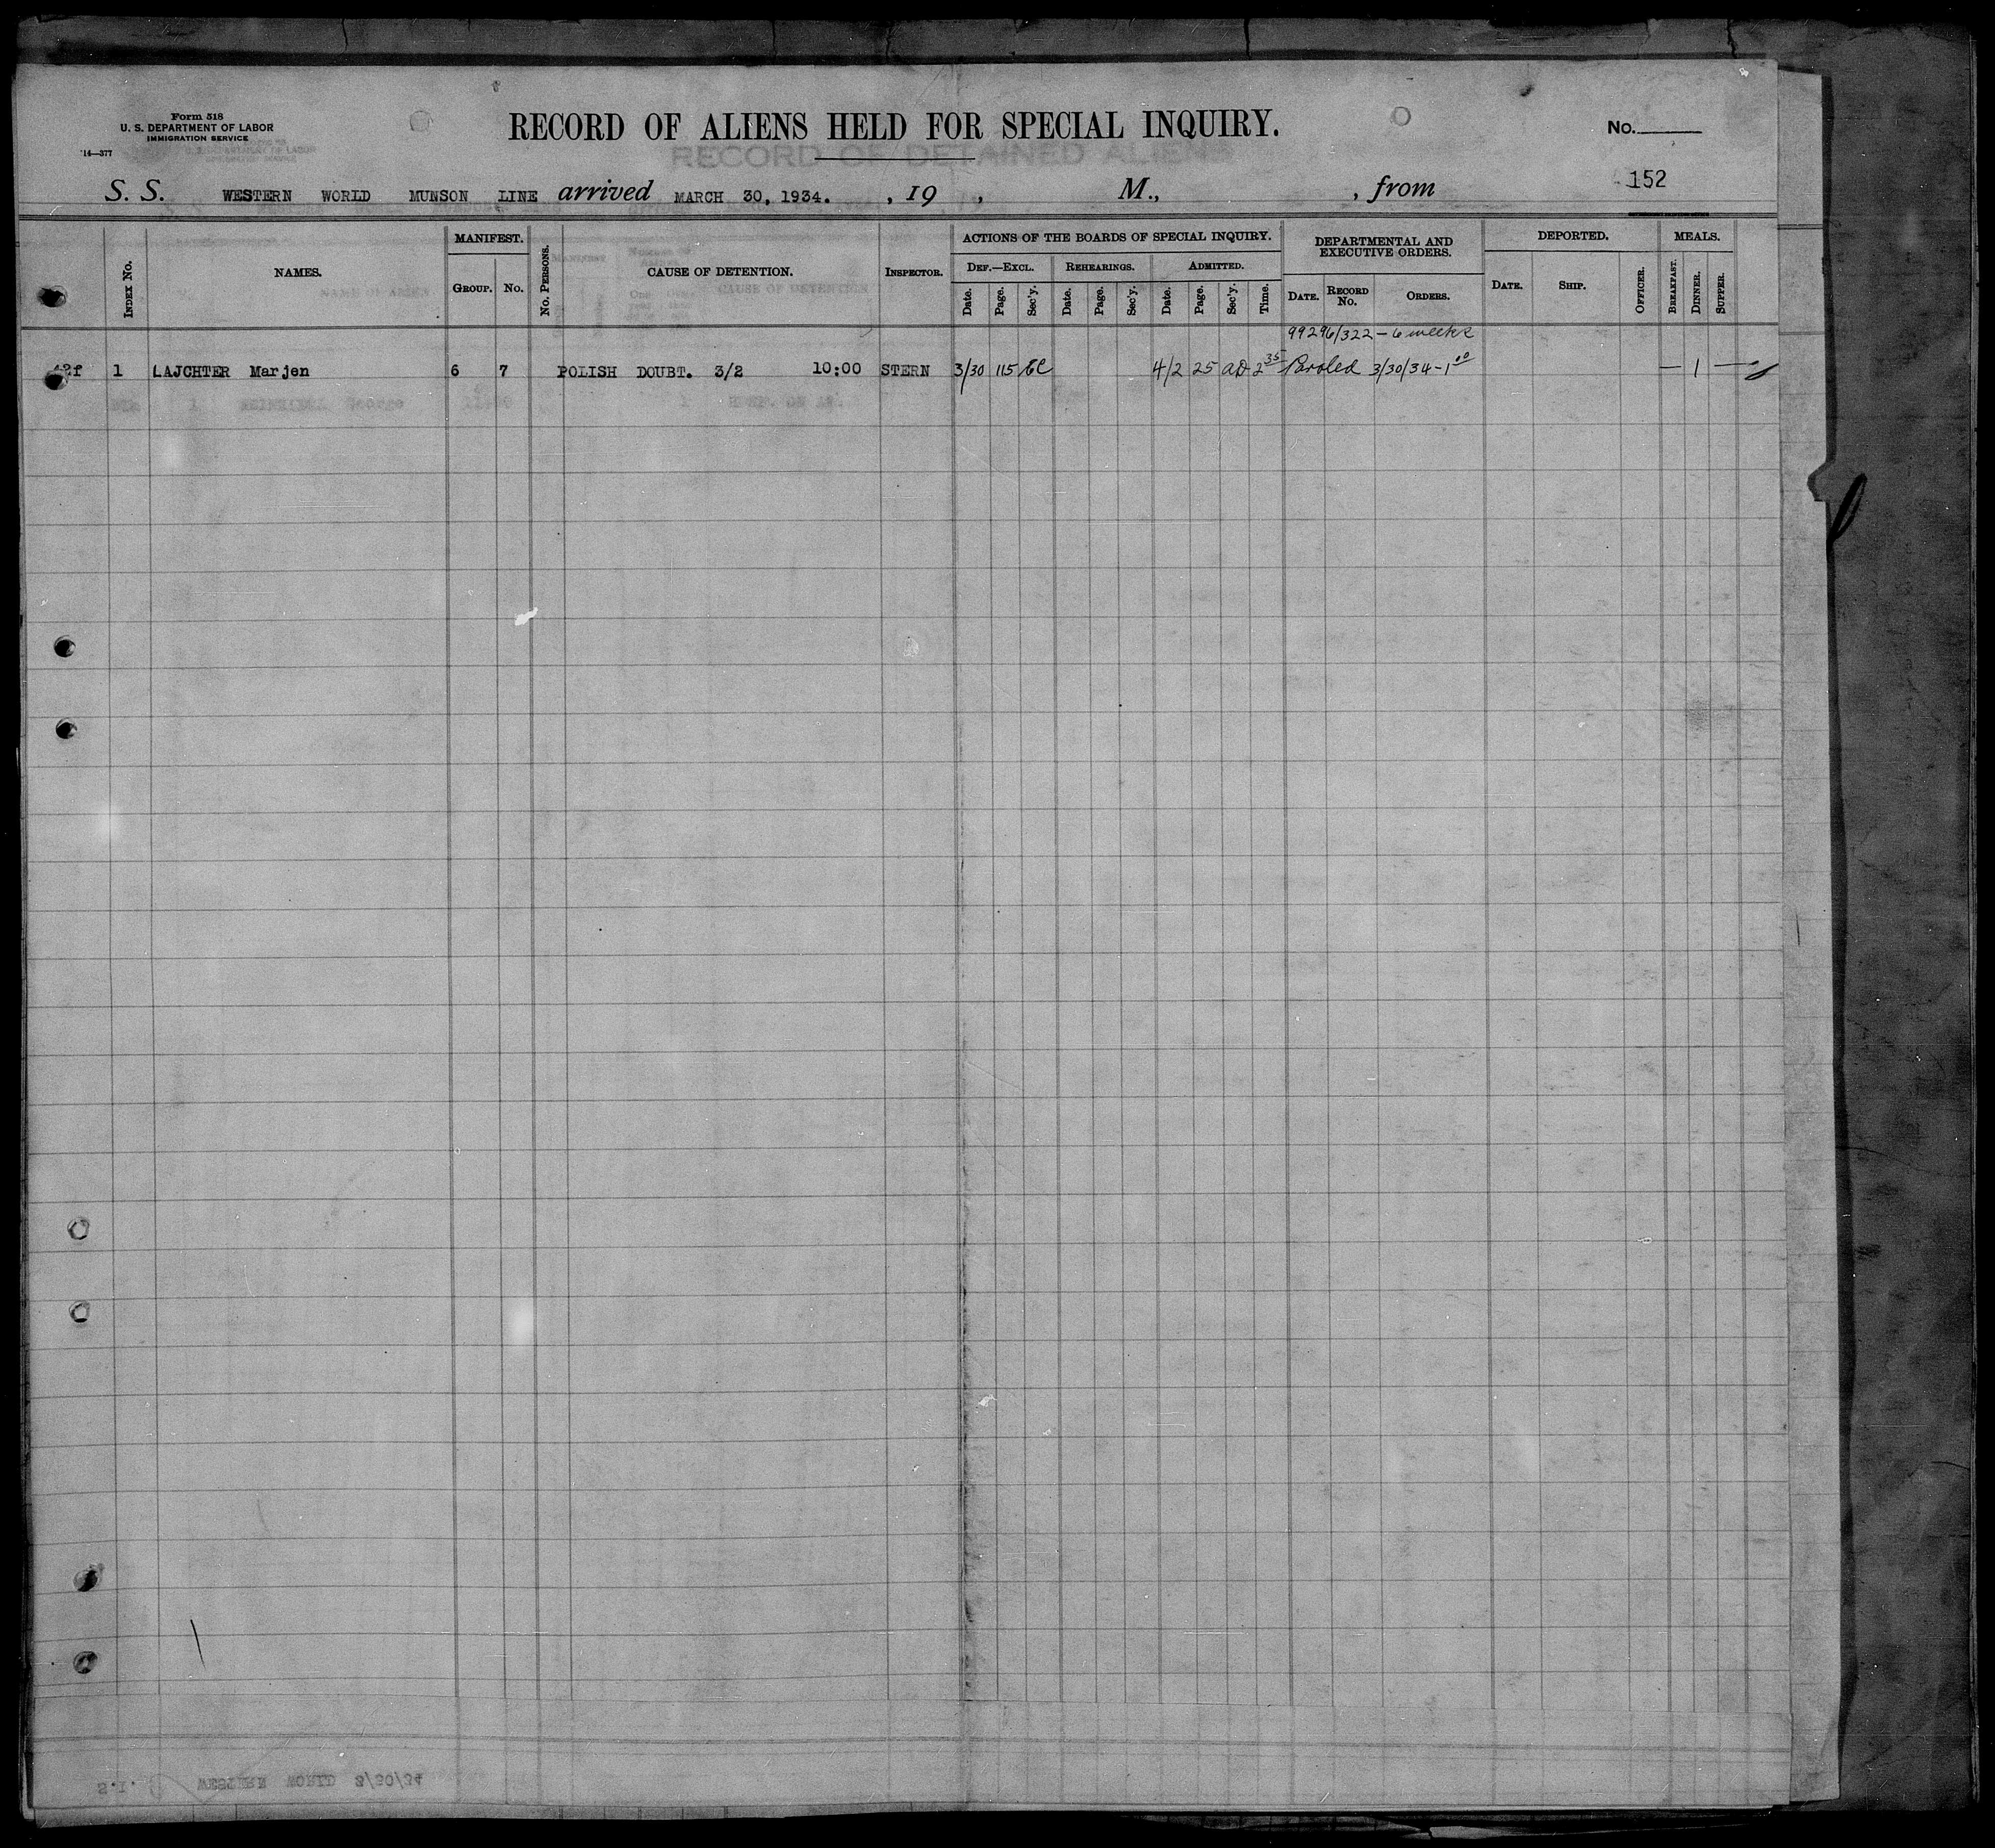 Form 518
U. S. DEPARTMENT OF LABOR
IMMIGRATION SERVICE
14—377
RECORD OF ALIENS HELD FOR SPECIAL INQUIRY.
RECORD OF DETAINED ALIENS
No.
152
S. S. WESTERN WORLD MUNSON LINE arrived MARCH 30, 1934. , 19 , M., , from
INDEX No. NAMES. MANIFEST. GROUP. No. No. PERSONS. CAUSE OF DETENTION. INSPECTOR.
ACTIONS OF THE BOARDS OF SPECIAL INQUIRY.
DEF.—EXCL. Date. Page. Sec'y. REHEARINGS. Date. Page. Sec'y. ADMITTED. Date. Page. Sec'y. Time.
DEPARTMENTAL AND EXECUTIVE ORDERS. DATE. RECORD No. ORDERS.
DEPORTED. DATE. SHIP. OFFICER.
MEALS. BREAKFAST. DINNER. SUPPER.
99296/322 – 6 weeks
1 LAJCHTER Marjen 6 7 POLISH DOUBT. 3/2 10:00 STERN 3/30 115 4/2 25 AD 2 35 Paroled 3/30/34 – 1 00 — 1 —
George
S.I. WESTERN WORLD 3/30/34